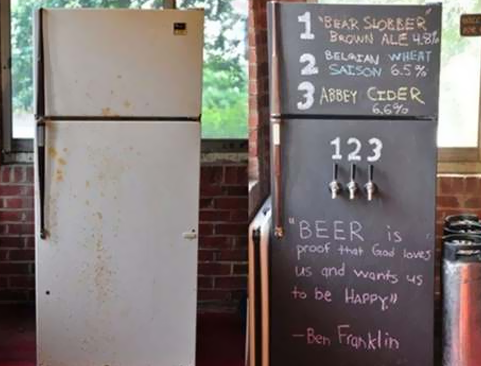 1 "BEAR SLOBBER"
BROWN ALE 4.8%
2 BELGIAN WHEAT
SAISON 6.5%
3 ABBEY CIDER
6.6%
1 2 3
"BEER is
proof that God loves
us and wants us
to be HAPPY"
-Ben Franklin